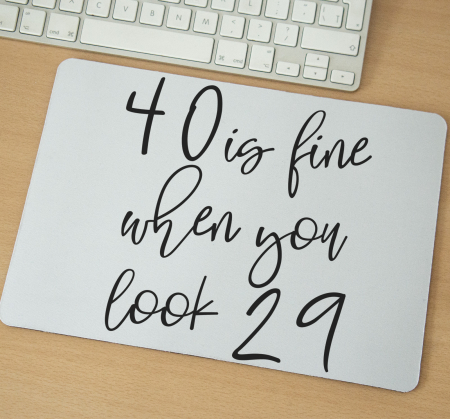 40 is fine
when you
look 29